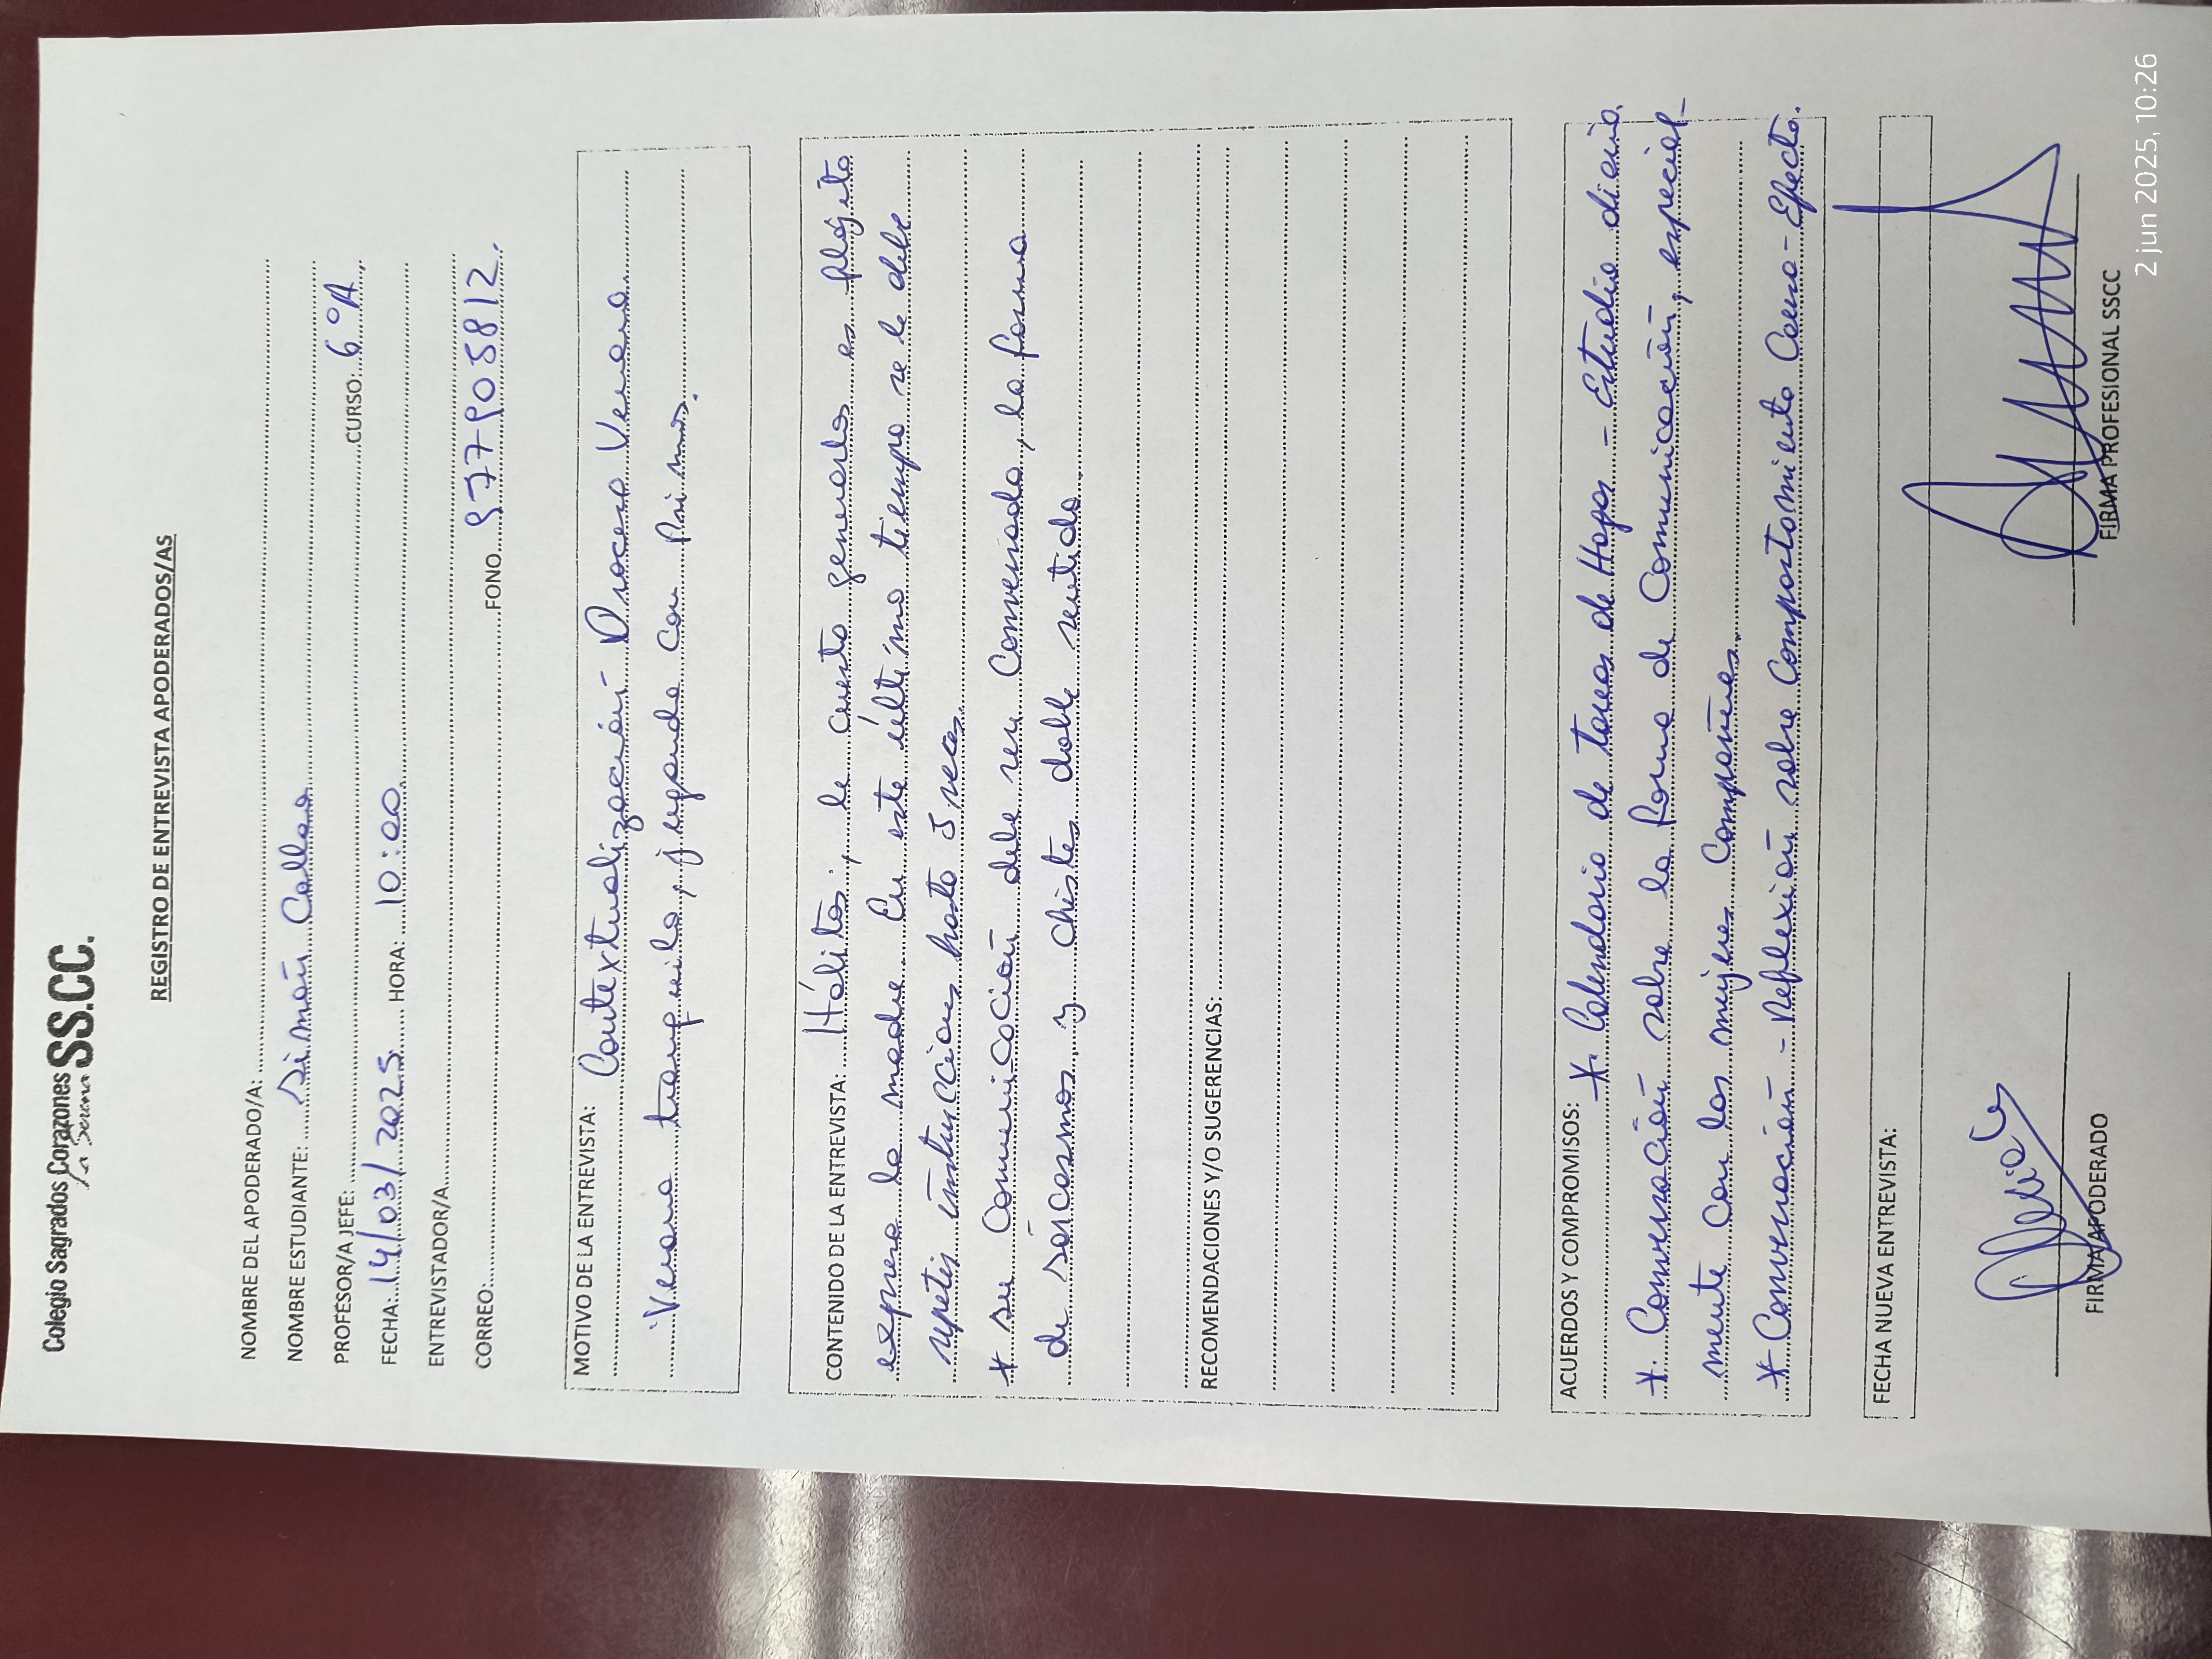 Colegio Sagrados Corazones SS.CC.
La Serena
REGISTRO DE ENTREVISTA APODERADOS/AS
NOMBRE DEL APODERADO/A:
NOMBRE ESTUDIANTE: Simón Callea
PROFESOR/A JEFE: CURSO: 6°A
FECHA: 14/03/2025 HORA: 10:00
ENTREVISTADOR/A
CORREO: FONO 977905812
MOTIVO DE LA ENTREVISTA: Contextualización Proceso Verano
Verano tranquilo, jugando con Primos.
CONTENIDO DE LA ENTREVISTA: Hábitos, le cuesta generarlos es
expresa la madre. En este último tiempo se le debe
repetir instrucciones hasta 5 veces.
* su Comunicación debe ser Conversada, la forma
de sarcasmos y chistes doble sentido.
RECOMENDACIONES Y/O SUGERENCIAS:
ACUERDOS Y COMPROMISOS: * Calendario de tareas de Hogar - Estudio diario.
* Conversación sobre la forma de Comunicación, especial-
mente con las mujeres Compañeras.
* Conversación - Reflexión sobre Comportamiento Causa - Efecto.
FECHA NUEVA ENTREVISTA:
FIRMA APODERADO FIRMA PROFESIONAL SSCC
2 jun 2025, 10:26